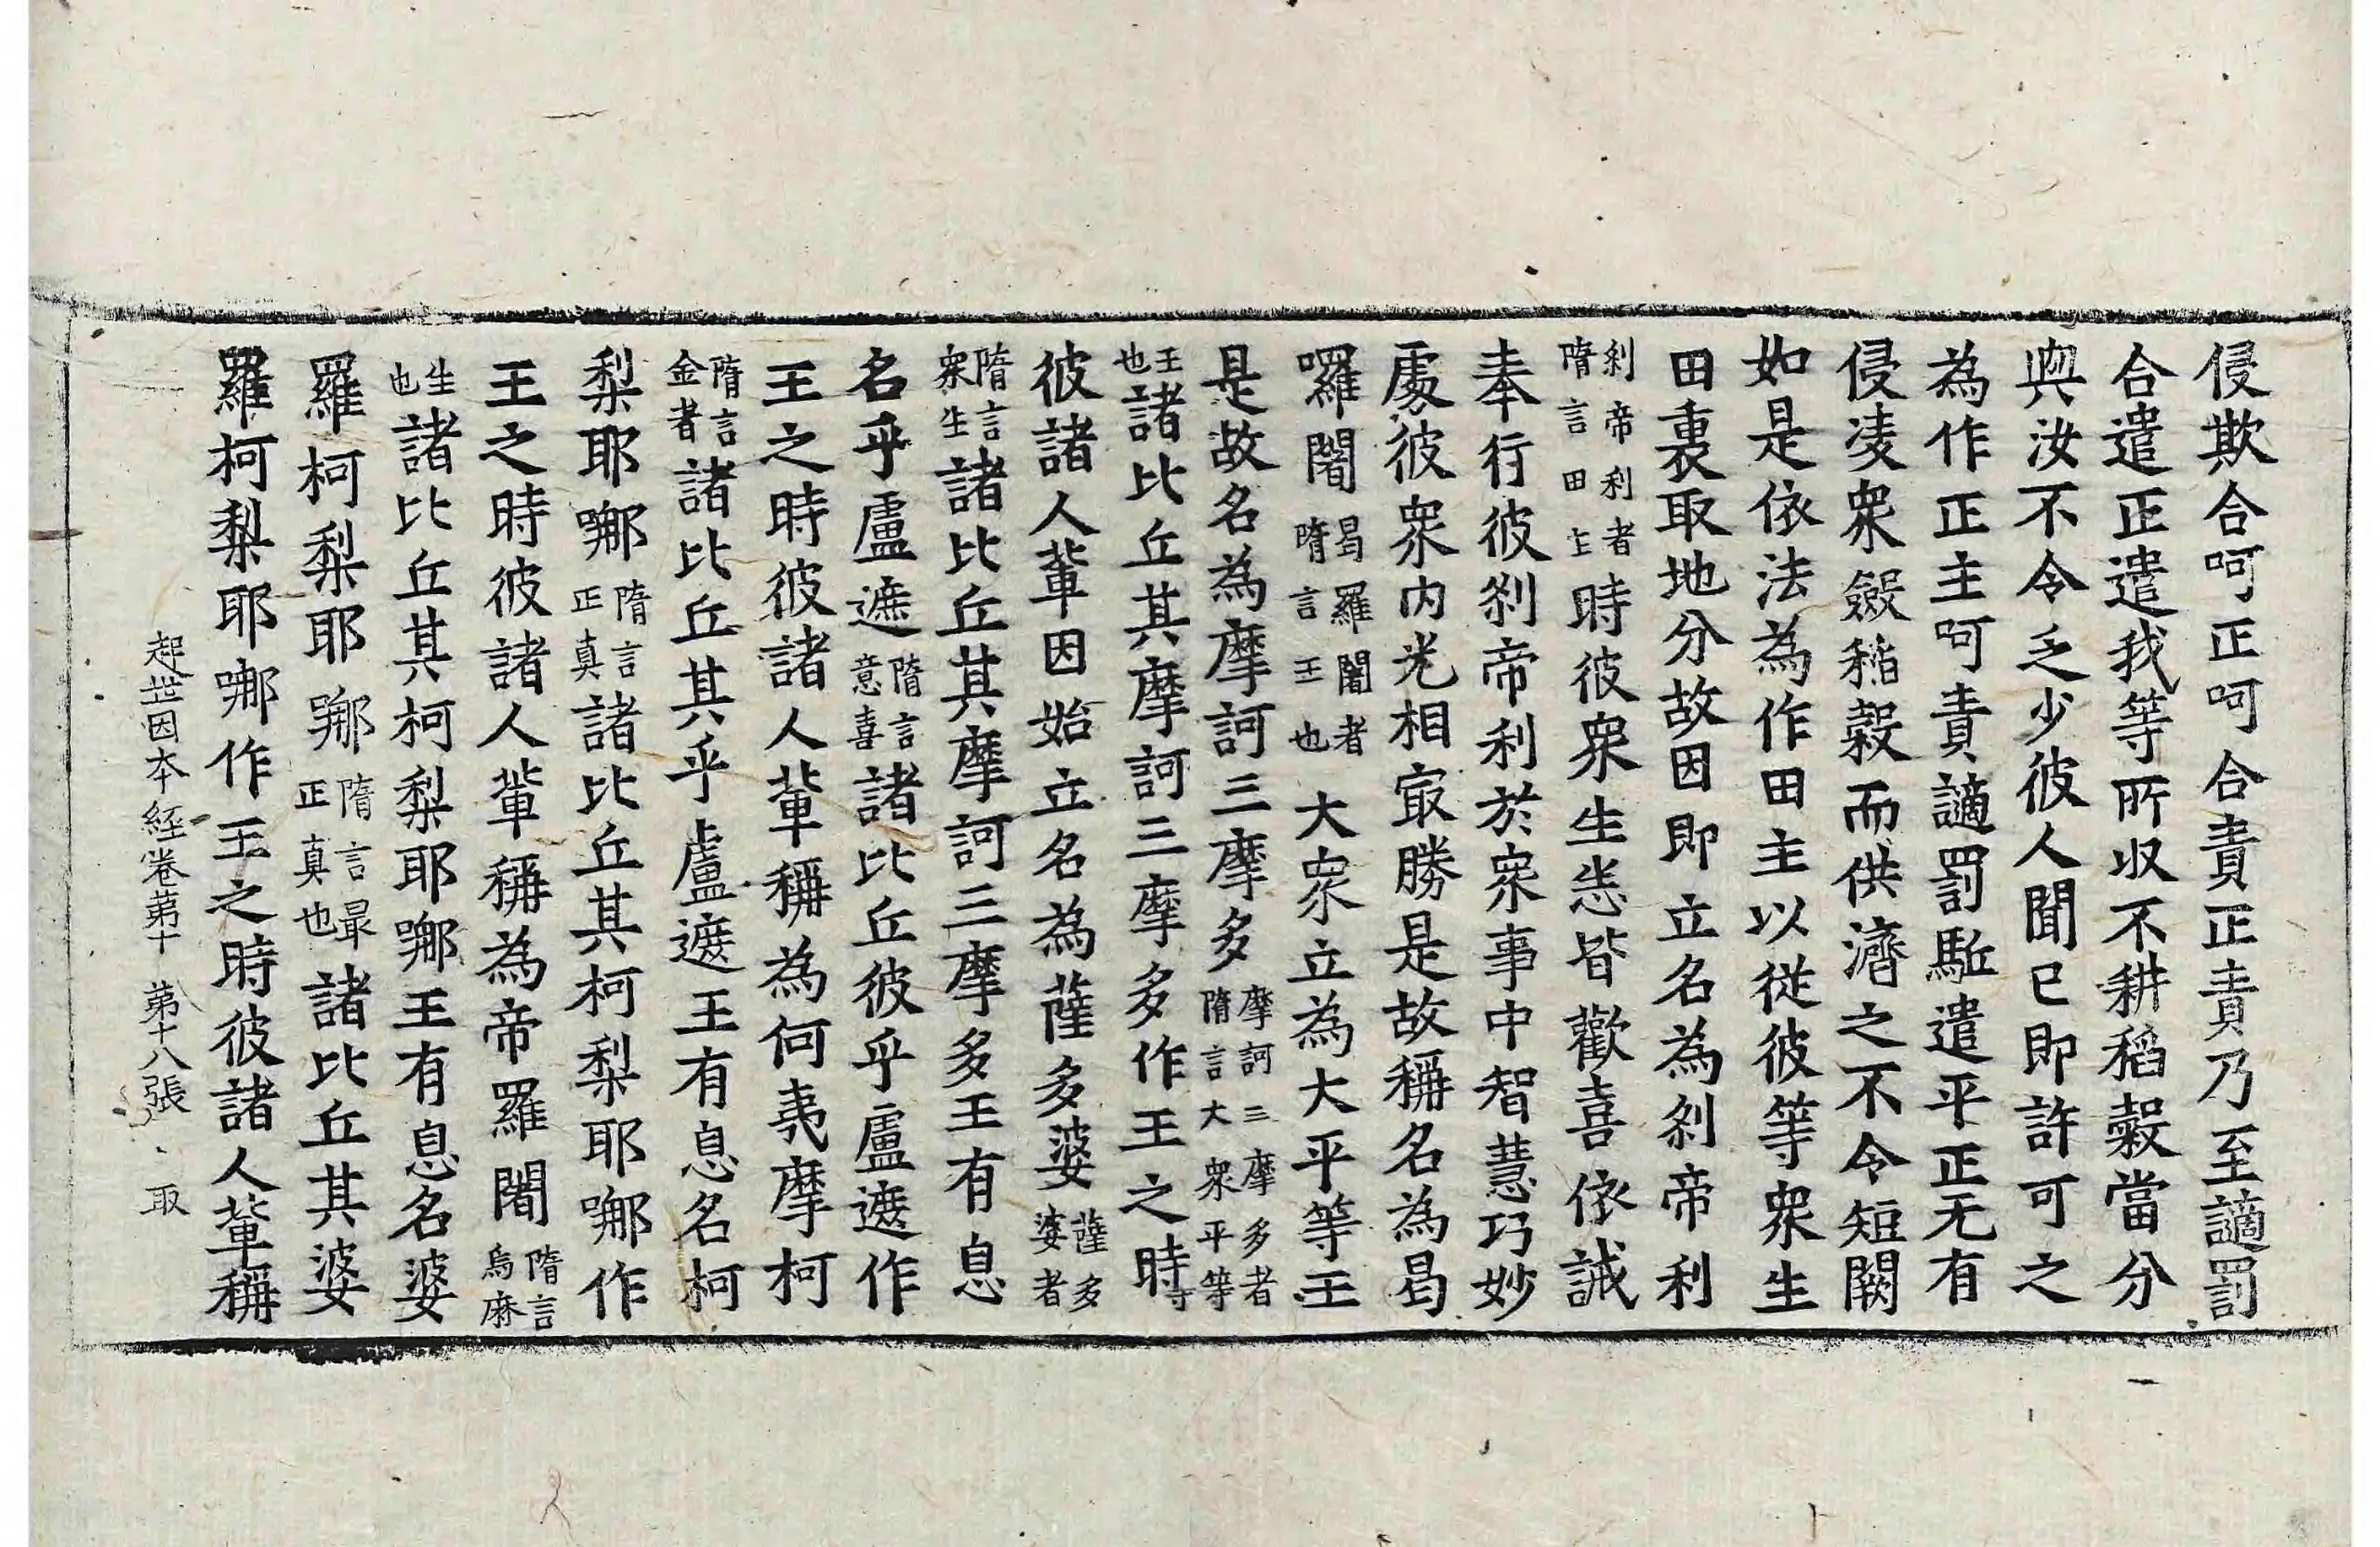 侵欺合呵正呵合責正責乃至讁罰
合遣正遣我等所収不耕稻糓當分
與汝不令乏少彼人聞已即許可之
為作正主呵責讁罰駈遣平正无有
侵凌衆斂稲糓而供濟之不令短闕
如是依法為作田主以從彼等衆生
田裏取地分故因即立名為刹帝利
刹帝利者隋言田主時彼衆生悉皆歡喜依誡
奉行彼刹帝利於衆事中智慧巧妙
處彼衆内光相冣勝是故稱名為曷
囉闍曷羅闍者隋言王也大衆立為大平等王
是故名為摩訶三摩多摩訶三摩多者隋言大衆平等
王也諸比丘其摩訶三摩多作王之時
彼諸人輩因始立名為薩多婆薩多婆者
隋言衆生諸比丘其摩訶三摩多王有息
名乎盧遮隋言意喜諸比丘彼乎盧遮作
王之時彼諸人輩稱為何夷摩柯
隋言金者諸比丘其乎盧遮王有息名柯
梨耶㖠隋言正真諸比丘其柯梨耶㖠作
王之時彼諸人輩稱為帝羅闍隋言烏麻
生也諸比丘其柯梨耶㖠王有息名婆
羅柯梨耶㖠隋言最正真也諸比丘其婆
羅柯梨耶㖠作王之時彼諸人輩稱
起世因本経卷苐十 苐十八張 取